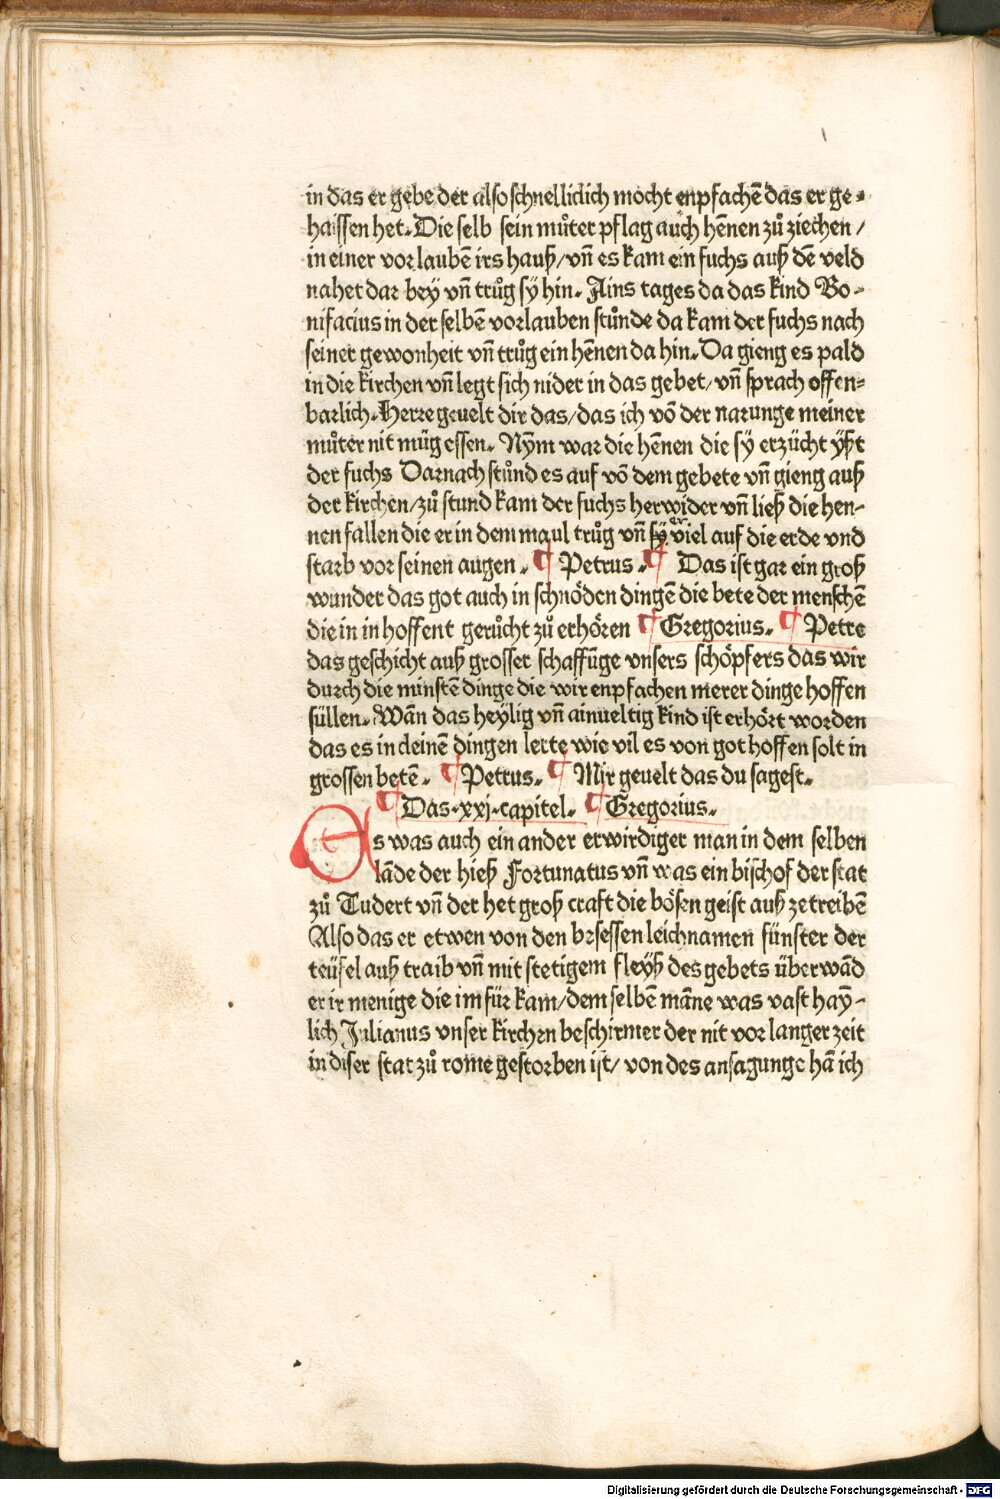 in das er gebe der also schnelliclich mocht enpfachē das er ge⸗
haissen het. Die selb sein můter pflag auch hēnen zů ziechen /
in einer vorlaubē irs hauß/vn̄ es kam ein fuchs auß dē veld
nahet dar bey vn̄ trůg sÿ hin. Ains tages da das kind Bo⸗
nifacius in der selbē vorlauben stůnde da kam der fuchs nach
seiner gewonheit vn̄ trůg ein hēnen da hin. Da gieng es pald
in die kirchen vn̄ legt sich nider in das gebet/vn̄ sprach offen⸗
barlich. Herre geuelt dir das/das ich vō der narunge meiner
můter nit müg essen. Nÿm war die hēnen die sÿ erzücht ÿßt
der fuchs Darnach stůnd es auf vō dem gebete vn̄ gieng auß
der kirchen/zů stund kam der fuchs herwider vn̄ ließ die hen⸗
nen fallen die er in dem maul trůg vn̄ er viel auf die erde vnd
starb vor seinen augen. ¶ Petrus. ¶ Das ist gar ein groß
wunder das got auch in schnöden dingē die bete der menschē
die in in hoffent gerůcht zů erhören ¶ Gregorius. ¶ Petre
das geschicht auß grosser schaffūge vnsers schöpfers das wir
durch die minstē dinge die wir enpfachen merer dinge hoffen
süllen. Wān das heÿlig vn̄ ainueltig kind ist erhört worden
das es in cleinē dingen lerte wie vil es von got hoffen solt in
grossen betē. ¶ Petrus. ¶ Mir geuelt das du sagest.
¶ Das.xxj.capitel. ¶ Gregorius.
Es was auch ein ander erwirdiger man in dem selben
lāde der hieß Fortunatus vn̄ was ein bischof der stat
zů Tudert vn̄ der het groß craft die bösen geist auß zetreibē
Also das er etwen von den besessen leichnamen fünster der
teüfel auß traib vn̄ mit stetigem fleÿß des gebets überwād
er ir menige die im für kam/dem selbē māne was vast haÿ⸗
lich Julianus vnser kirchen beschirmer der nit vor langer zeit
in diser stat zů rome gestorben ist/ von des ansagunge hā ich
Digitalisierung gefördert durch die Deutsche Forschungsgemeinschaft - DFG